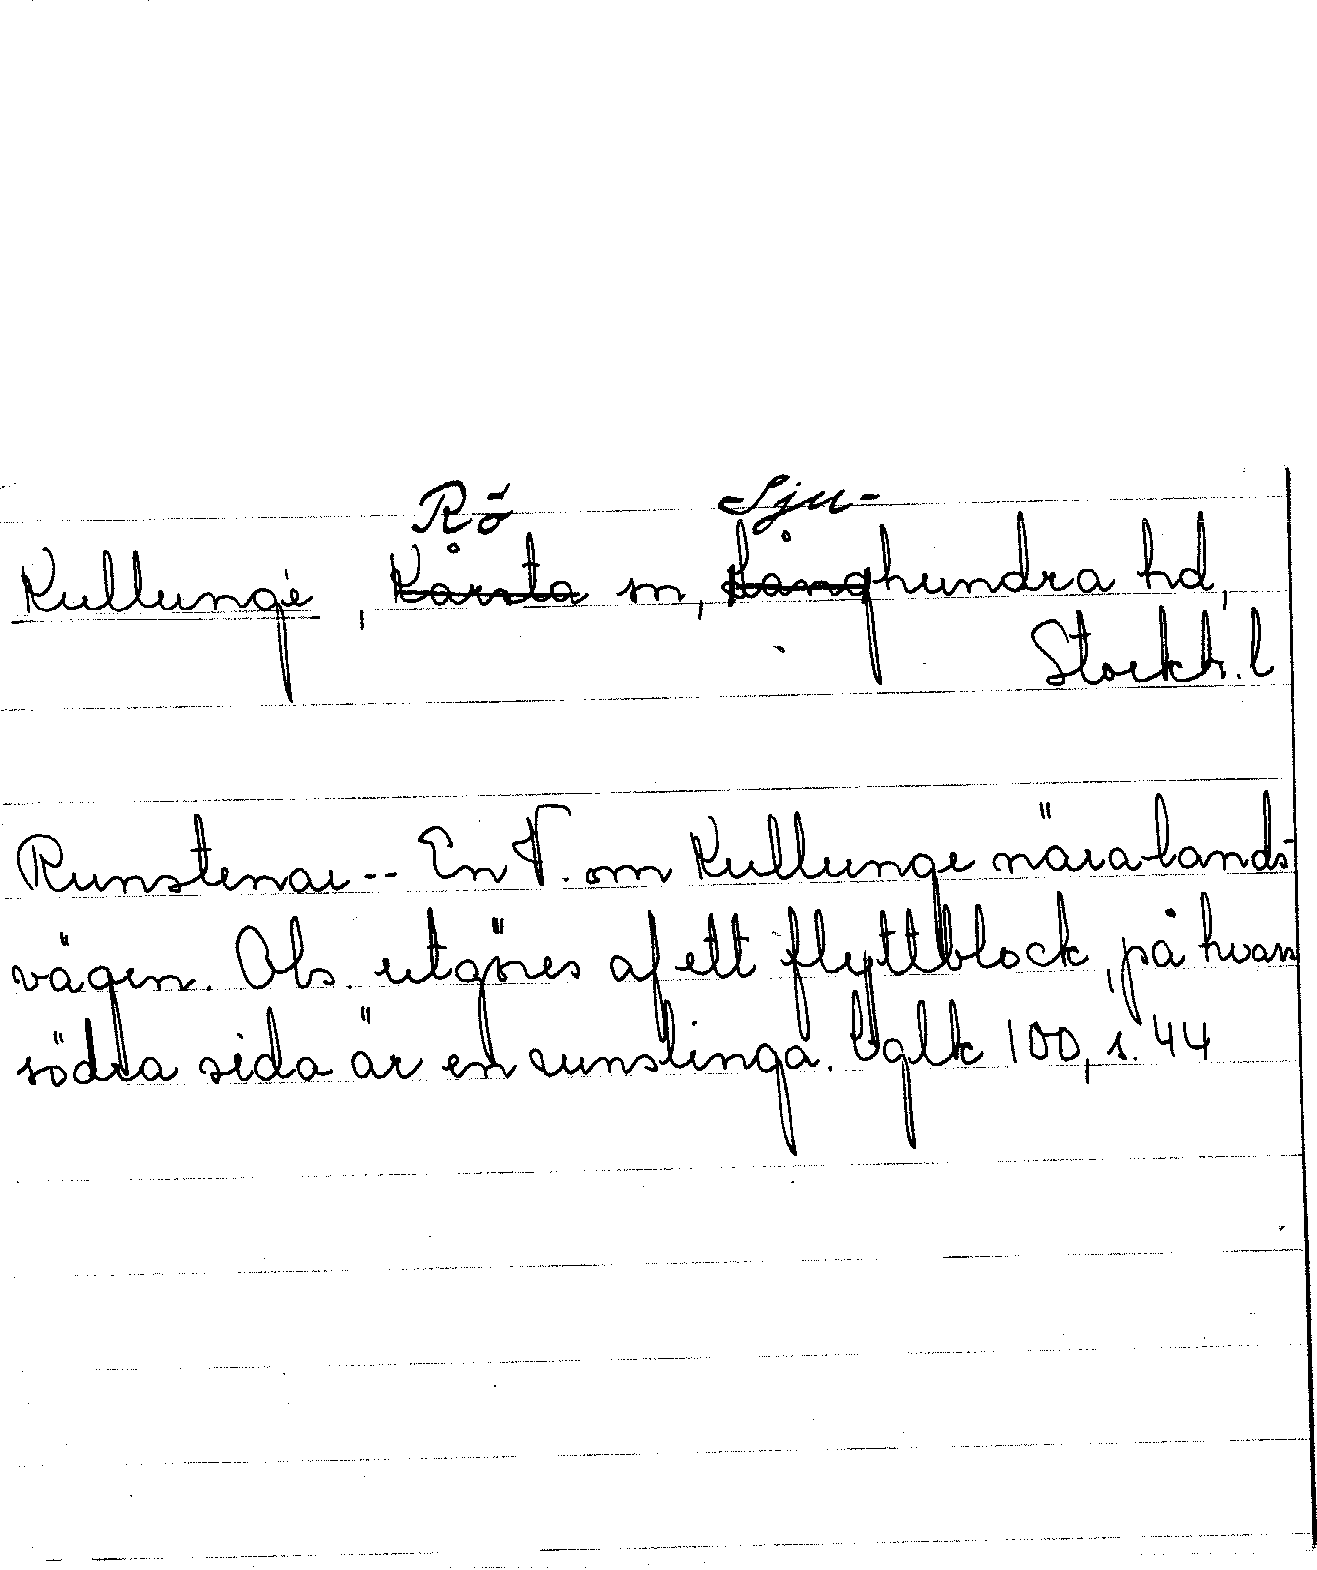 Rö Sju-
Kullunge, Kårsta sn, Långhundra hd,
Stockh. l
Runstenar -- En V. om Kullunge nära lands-
vägen. Obs. utgöres af ett flyttblock, på hvars
södra sida är en runslinga. Uglk 100, s. 44